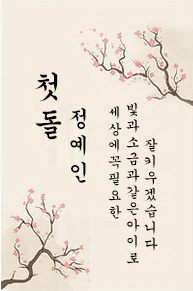 첫돌
정예인
세상에꼭필요한
빛과소금과같은아이로
잘키우겠습니다